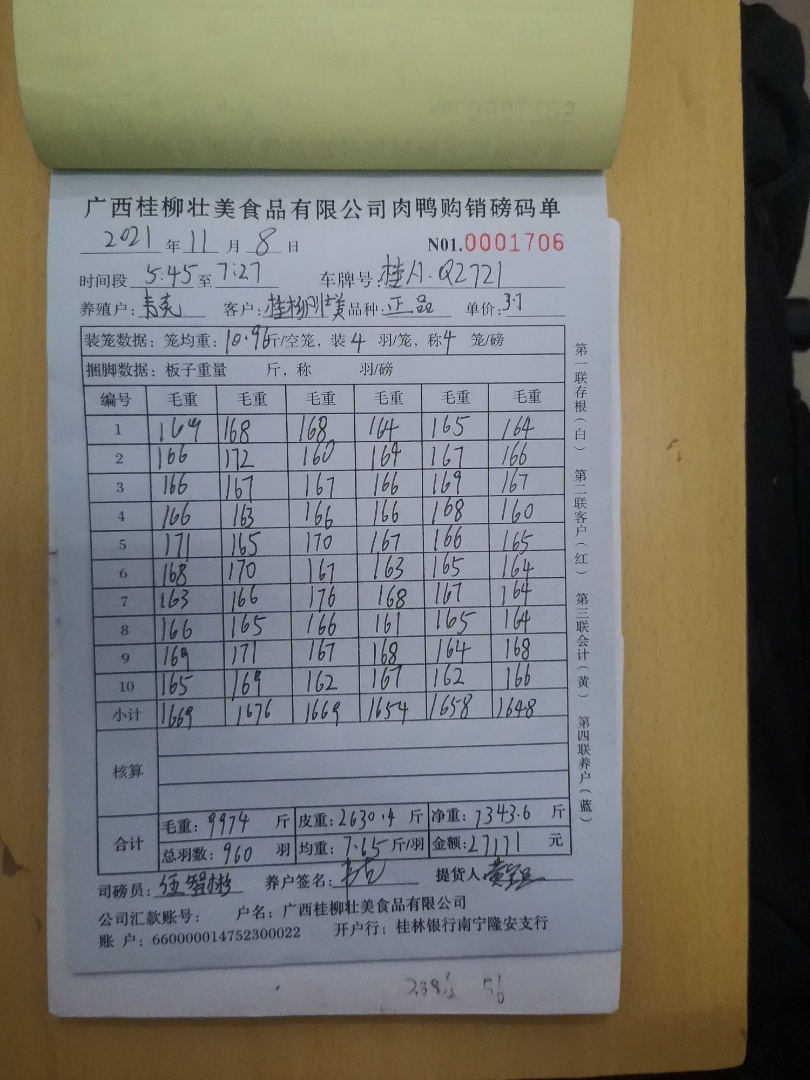 广西桂柳壮美食品有限公司肉鸭购销磅码单
2021 年 11 月 8 日 N01.0001706
时间段 5:45 至 7:27 车牌号: 桂A·Q2721
养殖户: 客户: 桂柳壮美 品种: 正品 单价: 3.7
装笼数据: 笼均重: 10.96 斤/空笼, 装 4 羽/笼, 称 4 笼/磅
捆脚数据: 板子重量 斤, 称 羽/磅
编号 毛重 毛重 毛重 毛重 毛重 毛重
1 169 168 168 164 165 164
2 166 172 160 164 167 166
3 166 167 167 166 169 167
4 166 163 166 166 168 160
5 171 165 170 167 166 165
6 168 170 167 163 165 164
7 163 166 176 168 167 164
8 166 165 166 161 165 164
9 169 171 167 168 164 168
10 165 169 162 167 162 166
小计 1669 1676 1669 1654 1658 1648
核算
合计 毛重: 9974 斤 皮重: 2630.4 斤 净重: 7343.6 斤
总羽数: 960 羽 均重: 7.65 斤/羽 金额: 27171 元
司磅员: 伍智彬 养户签名: 提货人
公司汇款账号: 户名: 广西桂柳壮美食品有限公司
账 户: 660000014752300022 开户行: 桂林银行南宁隆安支行
第一联存根(白) 第二联客户(红) 第三联会计(黄) 第四联养户(蓝)